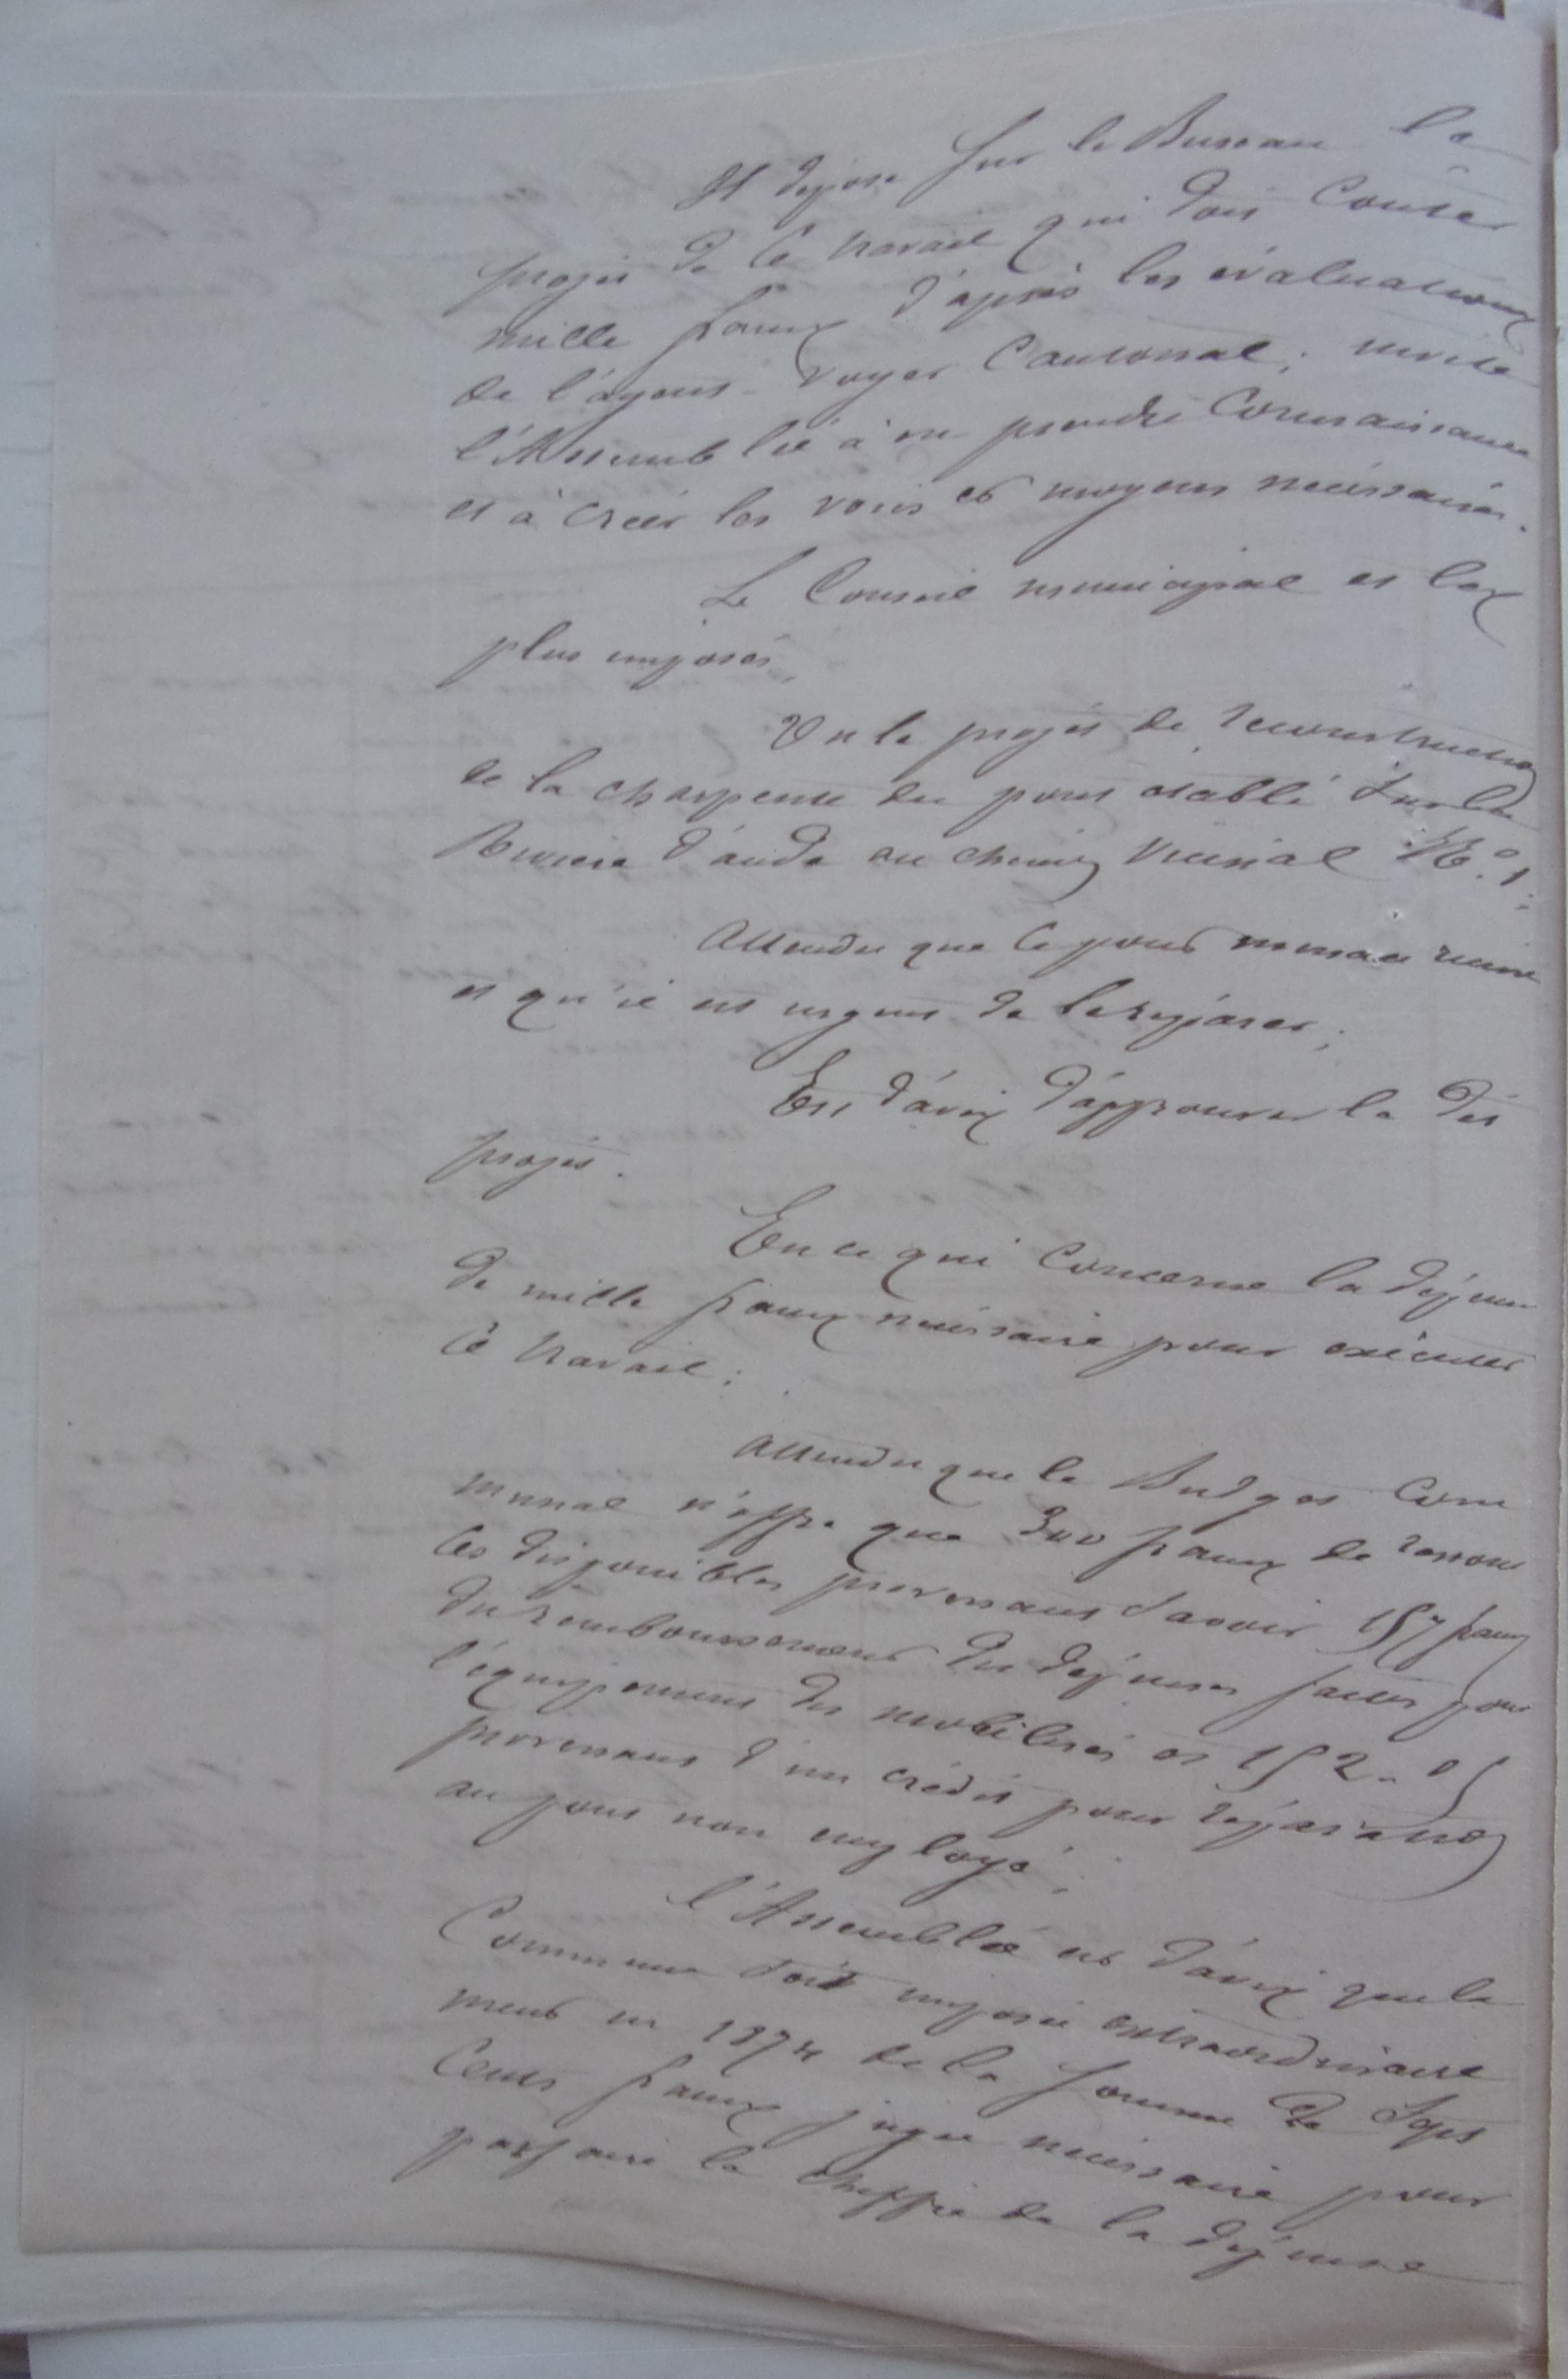 Il dépose sur le Bureau le
projet de ce travail qui doit Couter
mille francs d'après les évaluations
de l'agent-voyer Cantonal; invite
l'Assemblée à en prendre Connaissance
et à créer les voies et moyens nécessaires.
Le Conseil municipal et les
plus imposés,
Vu le projet de reconstruction
de la charpente du pont établi sur la
Rivière d'aude au chemin vicinal N.º 1;
Attendu que ce pont menace ruine
et qu'il est urgent de le réparer;
Est d'avis d'approuver le dit
projet.
En ce qui Concerne la dépense
de mille francs nécessaire pour exécuter
ce travail;
Attendu que le Budget Com
munal n'offre que 300 francs de ressour
ces disponibles provenant savoir 157 francs
du remboursement des dépenses faites pour
l'équipement des mobilisés et 152.05
provenant d'un crédit pour réparation
au pont non employé;
l'Assemblée est d'avis que la
Commune soit imposée extraordinaire
ment en 1874 de la somme de Sept
Cents francs jugée nécessaire pour
parfaire le chiffre de la dépense